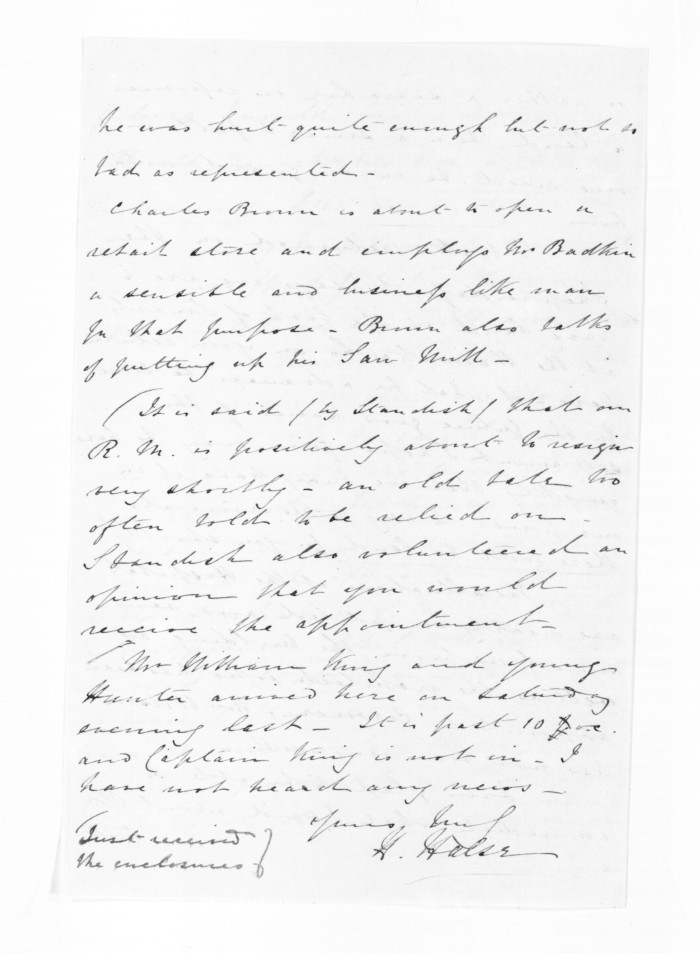 he was hurt quite enough but not so
bad as represented -
Charles Brown is about to open a
retail store and employs Mr Badkin
a sensible and business like man
for that purpose - Brown also talks
of putting up his Saw Mill -
(It is said (by Standish) that our
R. M. is positively about to resign
very shortly - an old tale too
often told to be relied on -
Standish also volunteered an
opinion that you would
receive the appointment -
Mr William King and young
Hunter arrived here on Saturday
evening last - It is past 10
and Captain King is not in - I
have not heard any news -
Yours truly
H. Halse
Just received
the enclosures